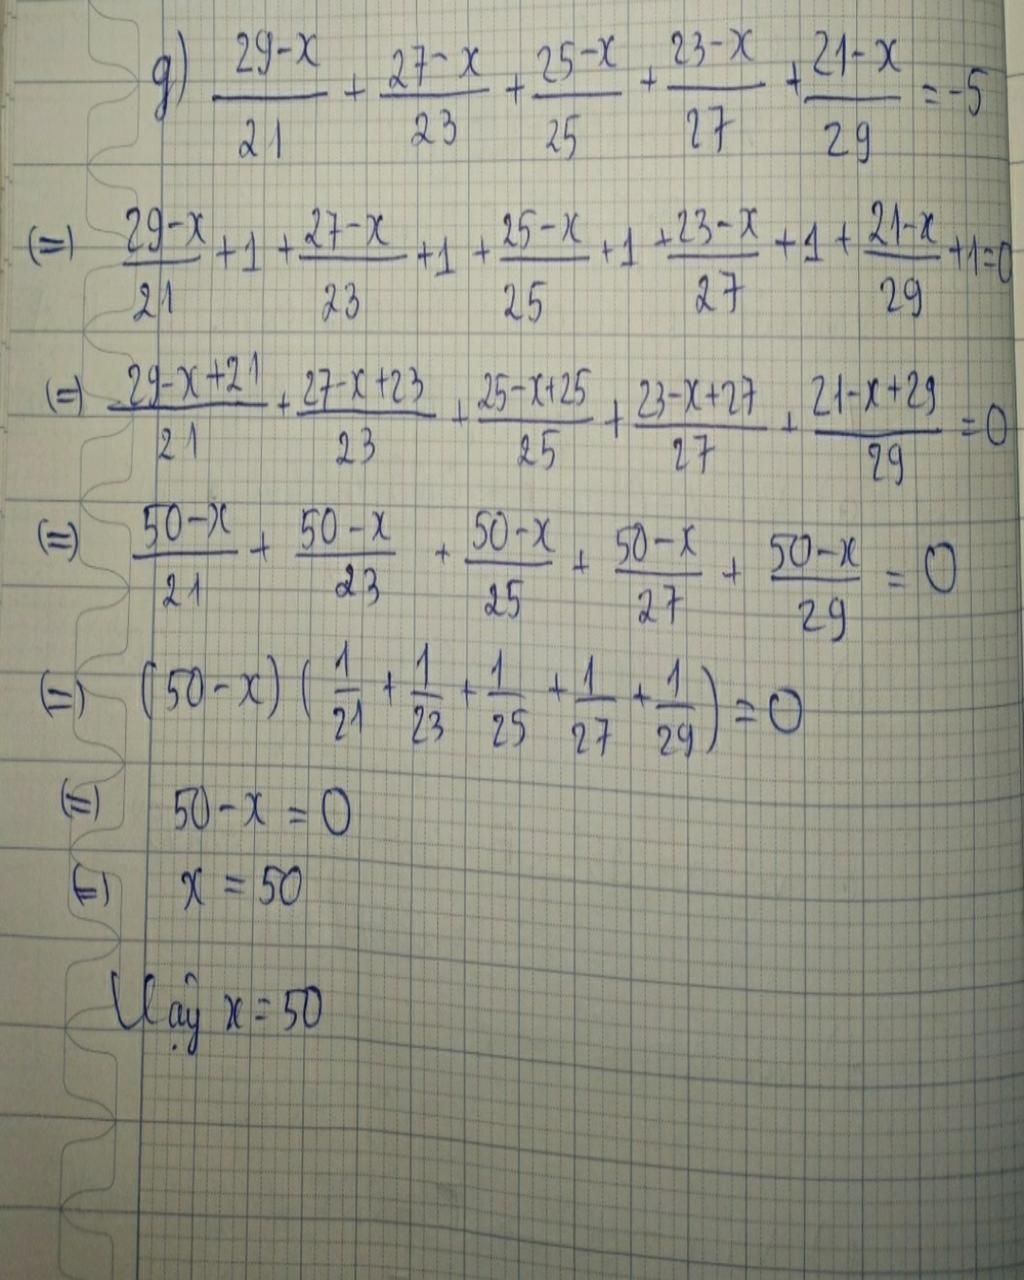 g) \frac{29-x}{21} + \frac{27-x}{23} + \frac{25-x}{25} + \frac{23-x}{27} + \frac{21-x}{29} = -5
(=) \frac{29-x}{21} + 1 + \frac{27-x}{23} + 1 + \frac{25-x}{25} + 1 + \frac{23-x}{27} + 1 + \frac{21-x}{29} + 1 = 0
(=) \frac{29-x+21}{21} + \frac{27-x+23}{23} + \frac{25-x+25}{25} + \frac{23-x+27}{27} + \frac{21-x+29}{29} = 0
(=) \frac{50-x}{21} + \frac{50-x}{23} + \frac{50-x}{25} + \frac{50-x}{27} + \frac{50-x}{29} = 0
(=) (50-x) (\frac{1}{21} + \frac{1}{23} + \frac{1}{25} + \frac{1}{27} + \frac{1}{29}) = 0
(=) 50-x = 0
(=) x = 50
Vậy x = 50